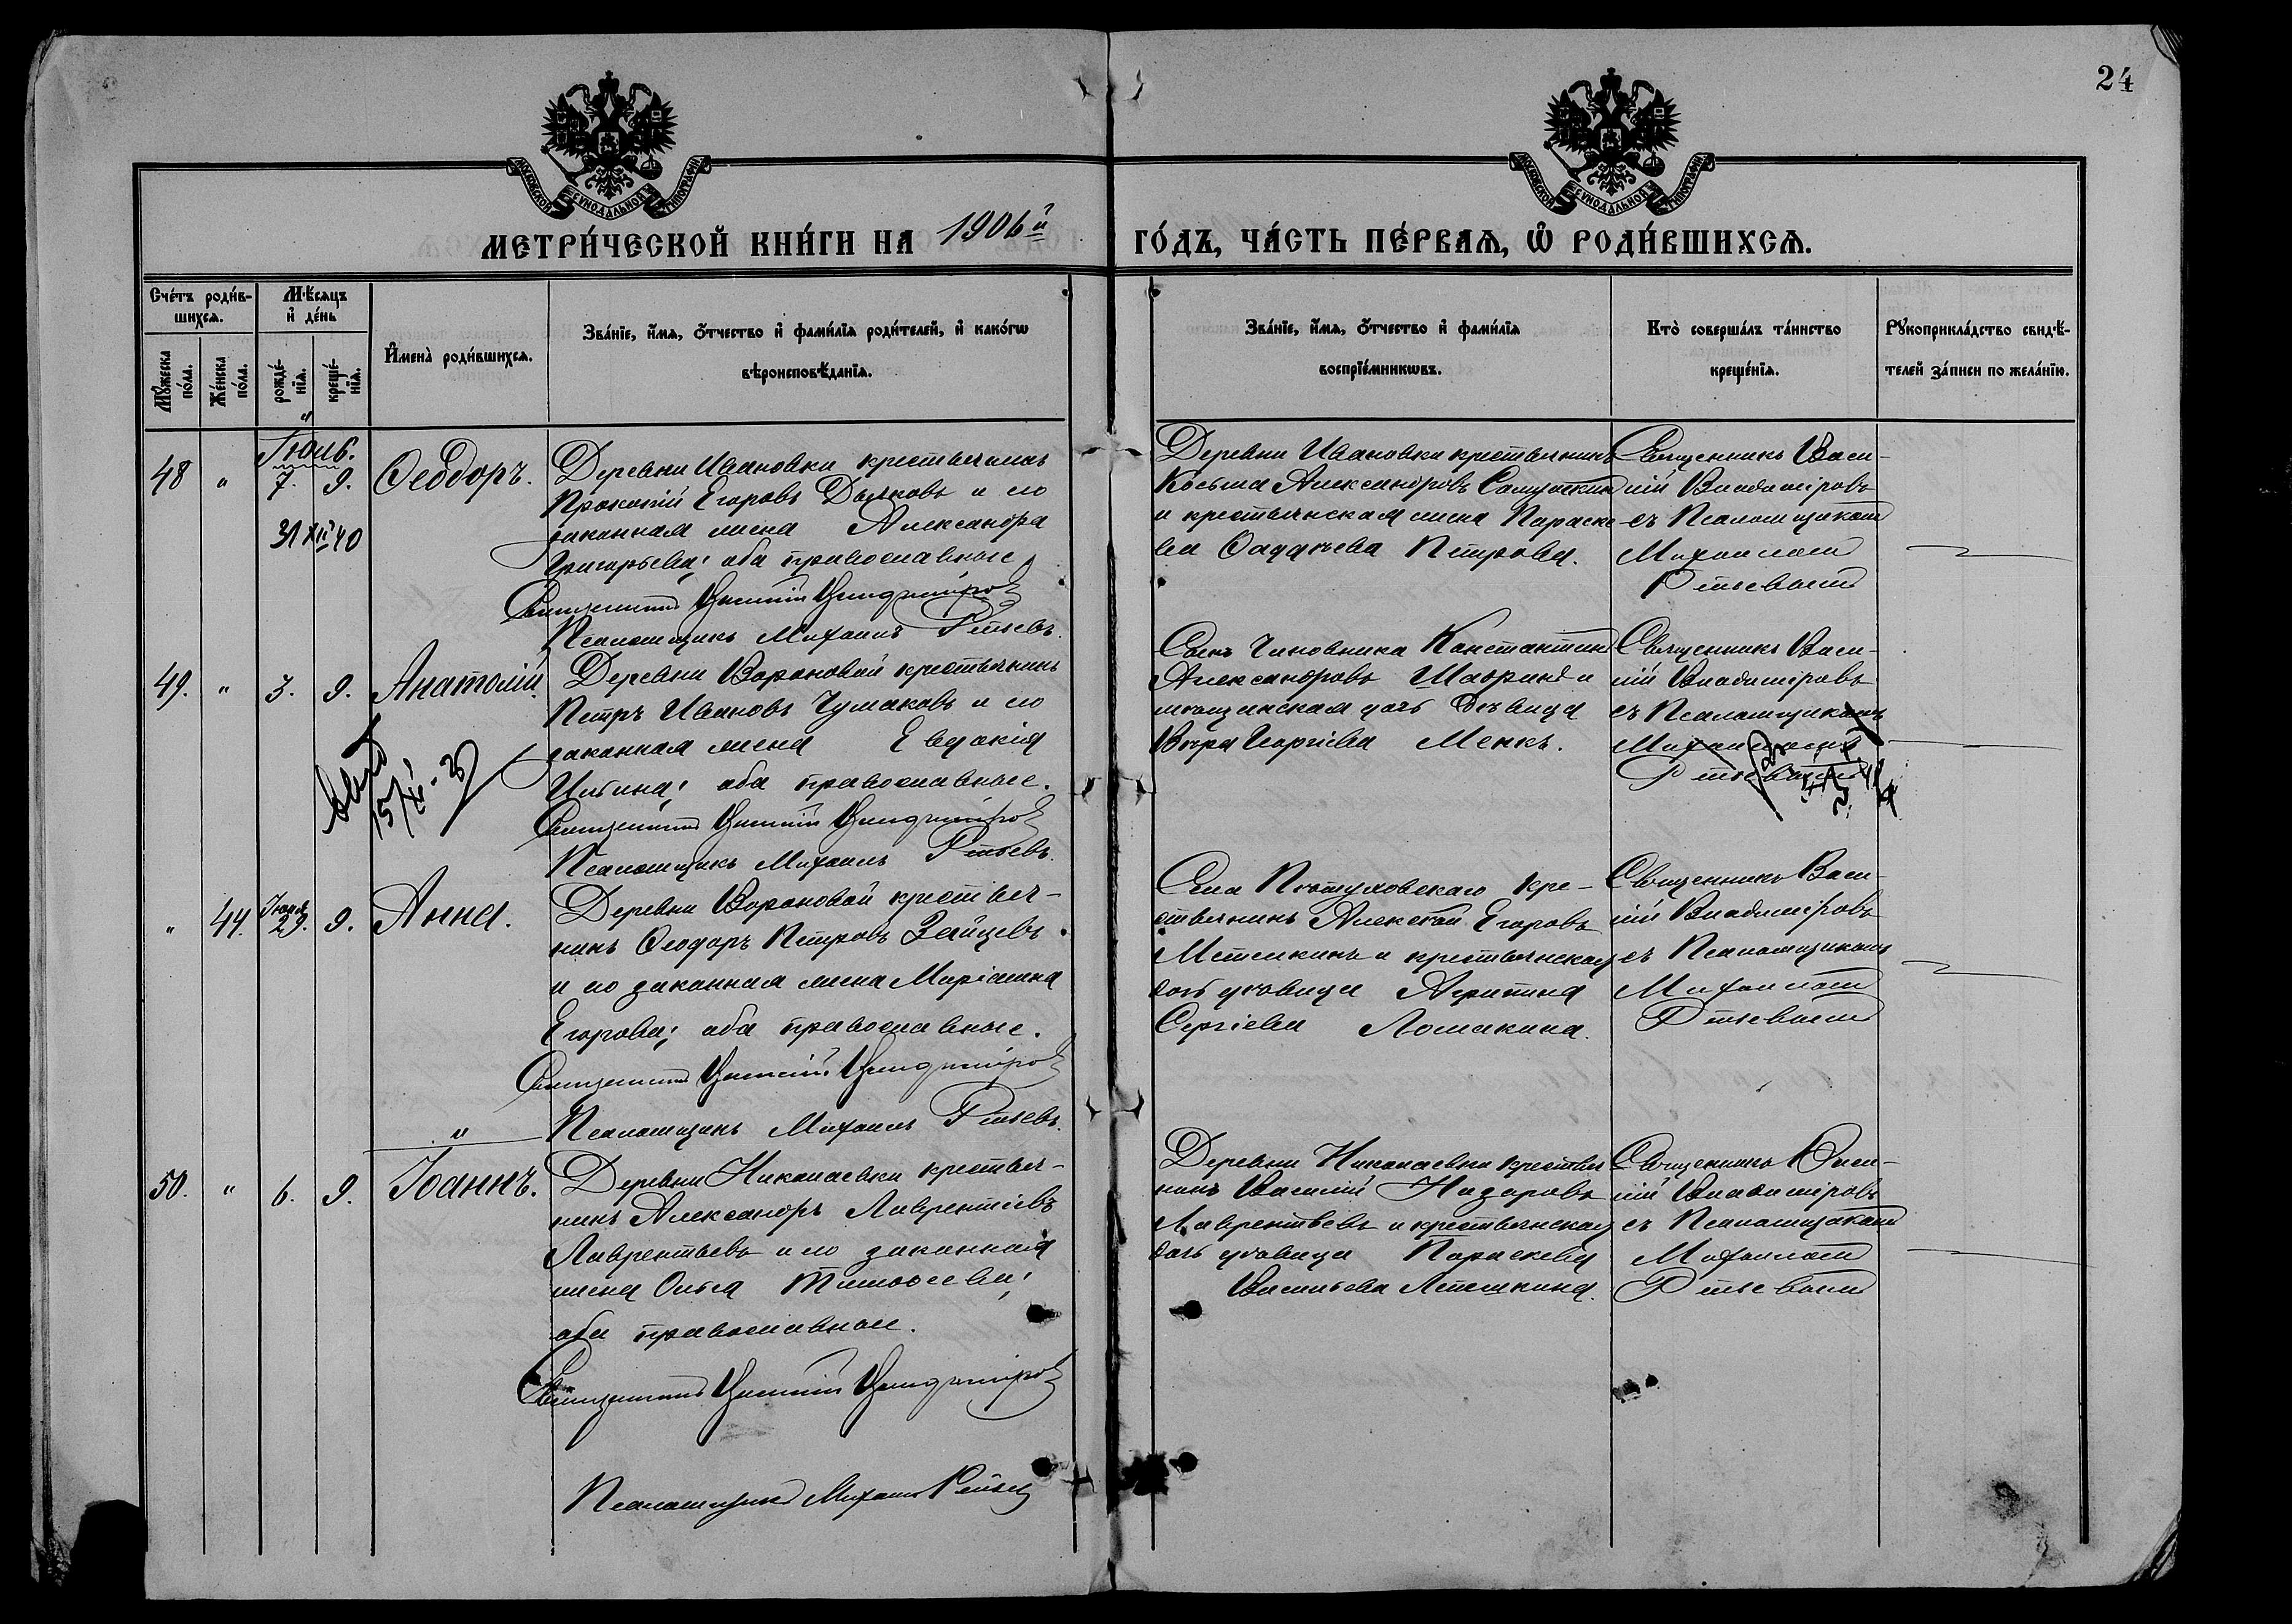 24
МОСКОВСКОЙ СѴНОДАЛЬНОЙ ТИПОГРАФІИ
МОСКОВСКОЙ СѴНОДАЛЬНОЙ ТИПОГРАФІИ
МЕТРИ́ЧЕСКОЙ КНИ́ГИ НА 1906й ГО́ДЪ, ЧА́СТЬ ПЕ́РВАѦ, Ѡ҆ РОДИ́ВШИХСѦ.
Сче́тъ роди́в-
шихсѧ.
Мꙋ́жеска по́ла.
Же́нска по́ла.
Мѣ́сѧцъ
и҆ де́нь
рожде́-
нїѧ.
креще́-
нїѧ.
И҆мена̀ роди́вшихсѧ.
Зва́нїе, и҆́мѧ, ѻ҆́тчество и҆ фами́лїѧ роди́телей, и҆ како́гѡ
вѣроисповѣ́данїѧ.
Зва́нїе, и҆́мѧ, ѻ҆́тчество и҆ фами́лїѧ
воспрїе́мникѡвъ.
Кто̀ соверша́лъ та́инство
креще́нїѧ.
Рꙋкоприкла́дство свидѣ́-
телей за́писи по жела́нїю.
Іюль.
48 " 7. 9. Ѳеодоръ.
31 XII 40
Деревни Ивановки крестьянинъ
Прокопій Егоровъ Дьяковъ и его
законная жена Александра
Григорьева; оба православные
Священникъ Василій Владиміровъ
Псаломщикъ Михаилъ
Деревни Ивановки крестьянинъ
Косьма Александровъ
и крестьянская жена Параске-
ва Ѳаддѣева Петрова.
Священникъ Васи-
лій Владиміровъ
съ Псаломщикомъ
Михаиломъ
49. " 3. 9. Анатолій.
15/XI-
Деревни Вороновой крестьянинъ
Петръ Ивановъ Чумаковъ и его
законная жена Евдокія
Ильина; оба православные.
Священникъ Василій Владиміровъ
Псаломщикъ Михаилъ
Сынъ Чиновника Константинъ
Александровъ Шавринъ и
мѣщанская дочь дѣвица
Вѣра Георгіева Менкъ.
Священникъ Васи-
лій Владиміровъ
съ Псаломщикомъ
Михаиломъ
" 44. Іюня 29. 9. Анна.
Деревни Вороновой крестьян-
нинъ Ѳеодоръ Петровъ Зайцевъ
и его законная жена Маріамна
Егорова; оба православные.
Священникъ Василій Владиміровъ
Псаломщикъ Михаилъ
Села Пѣтуховскаго кре-
стьянинъ Алексѣй Егоровъ
и крестьянская
дочь дѣвица Агрипина
Сергіева Ломакина.
Священникъ Васи-
лій Владиміровъ
съ Псаломщикомъ
Михаиломъ
"
50. " 6. 9. Іоаннъ.
Деревни Николаевки крестьян-
нинъ Александръ Лаврентіевъ
Лаврентьевъ и его законная
жена Ольга Тимоѳеева;
оба православные.
Священникъ Василій Владиміровъ
Псаломщикъ Михаилъ
Деревни Николаевки крестьян
нинъ Василій Назаровъ
Лаврентьевъ и крестьянская
дочь дѣвица Параскева
Васильева
Священникъ Васи-
лій Владиміровъ
съ Псаломщикомъ
Михаиломъ